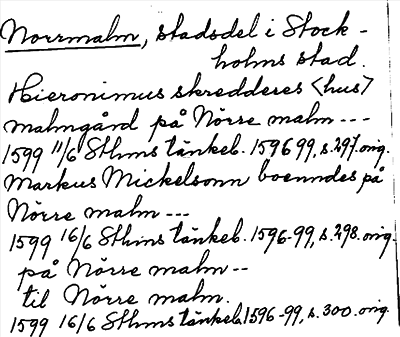 Norrmalm, stadsdel i Stock-
holms stad.
Hieronimus skredderes <hus>
malmgård på Nörre malm ---
1599 11/6 Sthms tänkeb. 1596 99, s. 297. orig.
Markus Mickelsonn boenndes på
Nörre malm ---
1599 16/6 Sthms tänkeb. 1596-99, s. 298. orig.
på Nörre malm --
til Nörre malm.
1599 16/6 Sthms tänkeb. 1596-99, s. 300. orig.